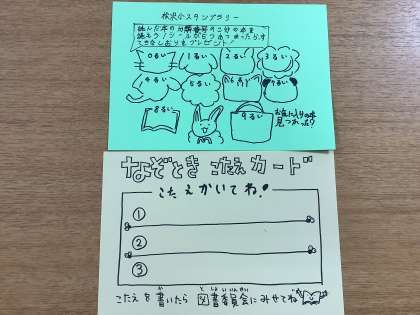 松沢小スタンプラリー
読んだ本の分類番号のこの本を
読もう!シールが5つあつまったらす
てきなしおりをプレゼント!
0るい
1るい
2るい
3るい
4るい
5るい
6るい
7るい
8るい
9るい
お気に入りの本
見つかった?
なぞとき こたえ カード
こたえかいてね!
①
②
③
こたえを書いたら 図書委員会にみせてね
か
と しょ い いん かい